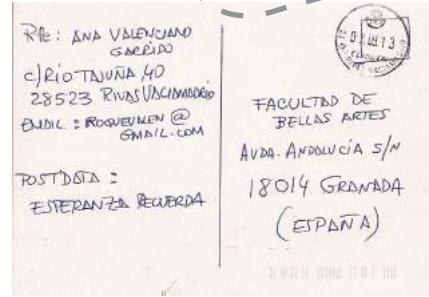 Rte: ANA VALENCIANO
GARRIDO
C/RIO TAJUÑA, 40
28523 RIVAS VACIAMADRID
EMAIL: ROQUEVALEN@
GMAIL.COM
POSTDATA:
ESPERANZA RECUERDA
FACULTAD DE
BELLAS ARTES
AVDA. ANDALUCÍA S/N
18014 GRANADA
(ESPAÑA)